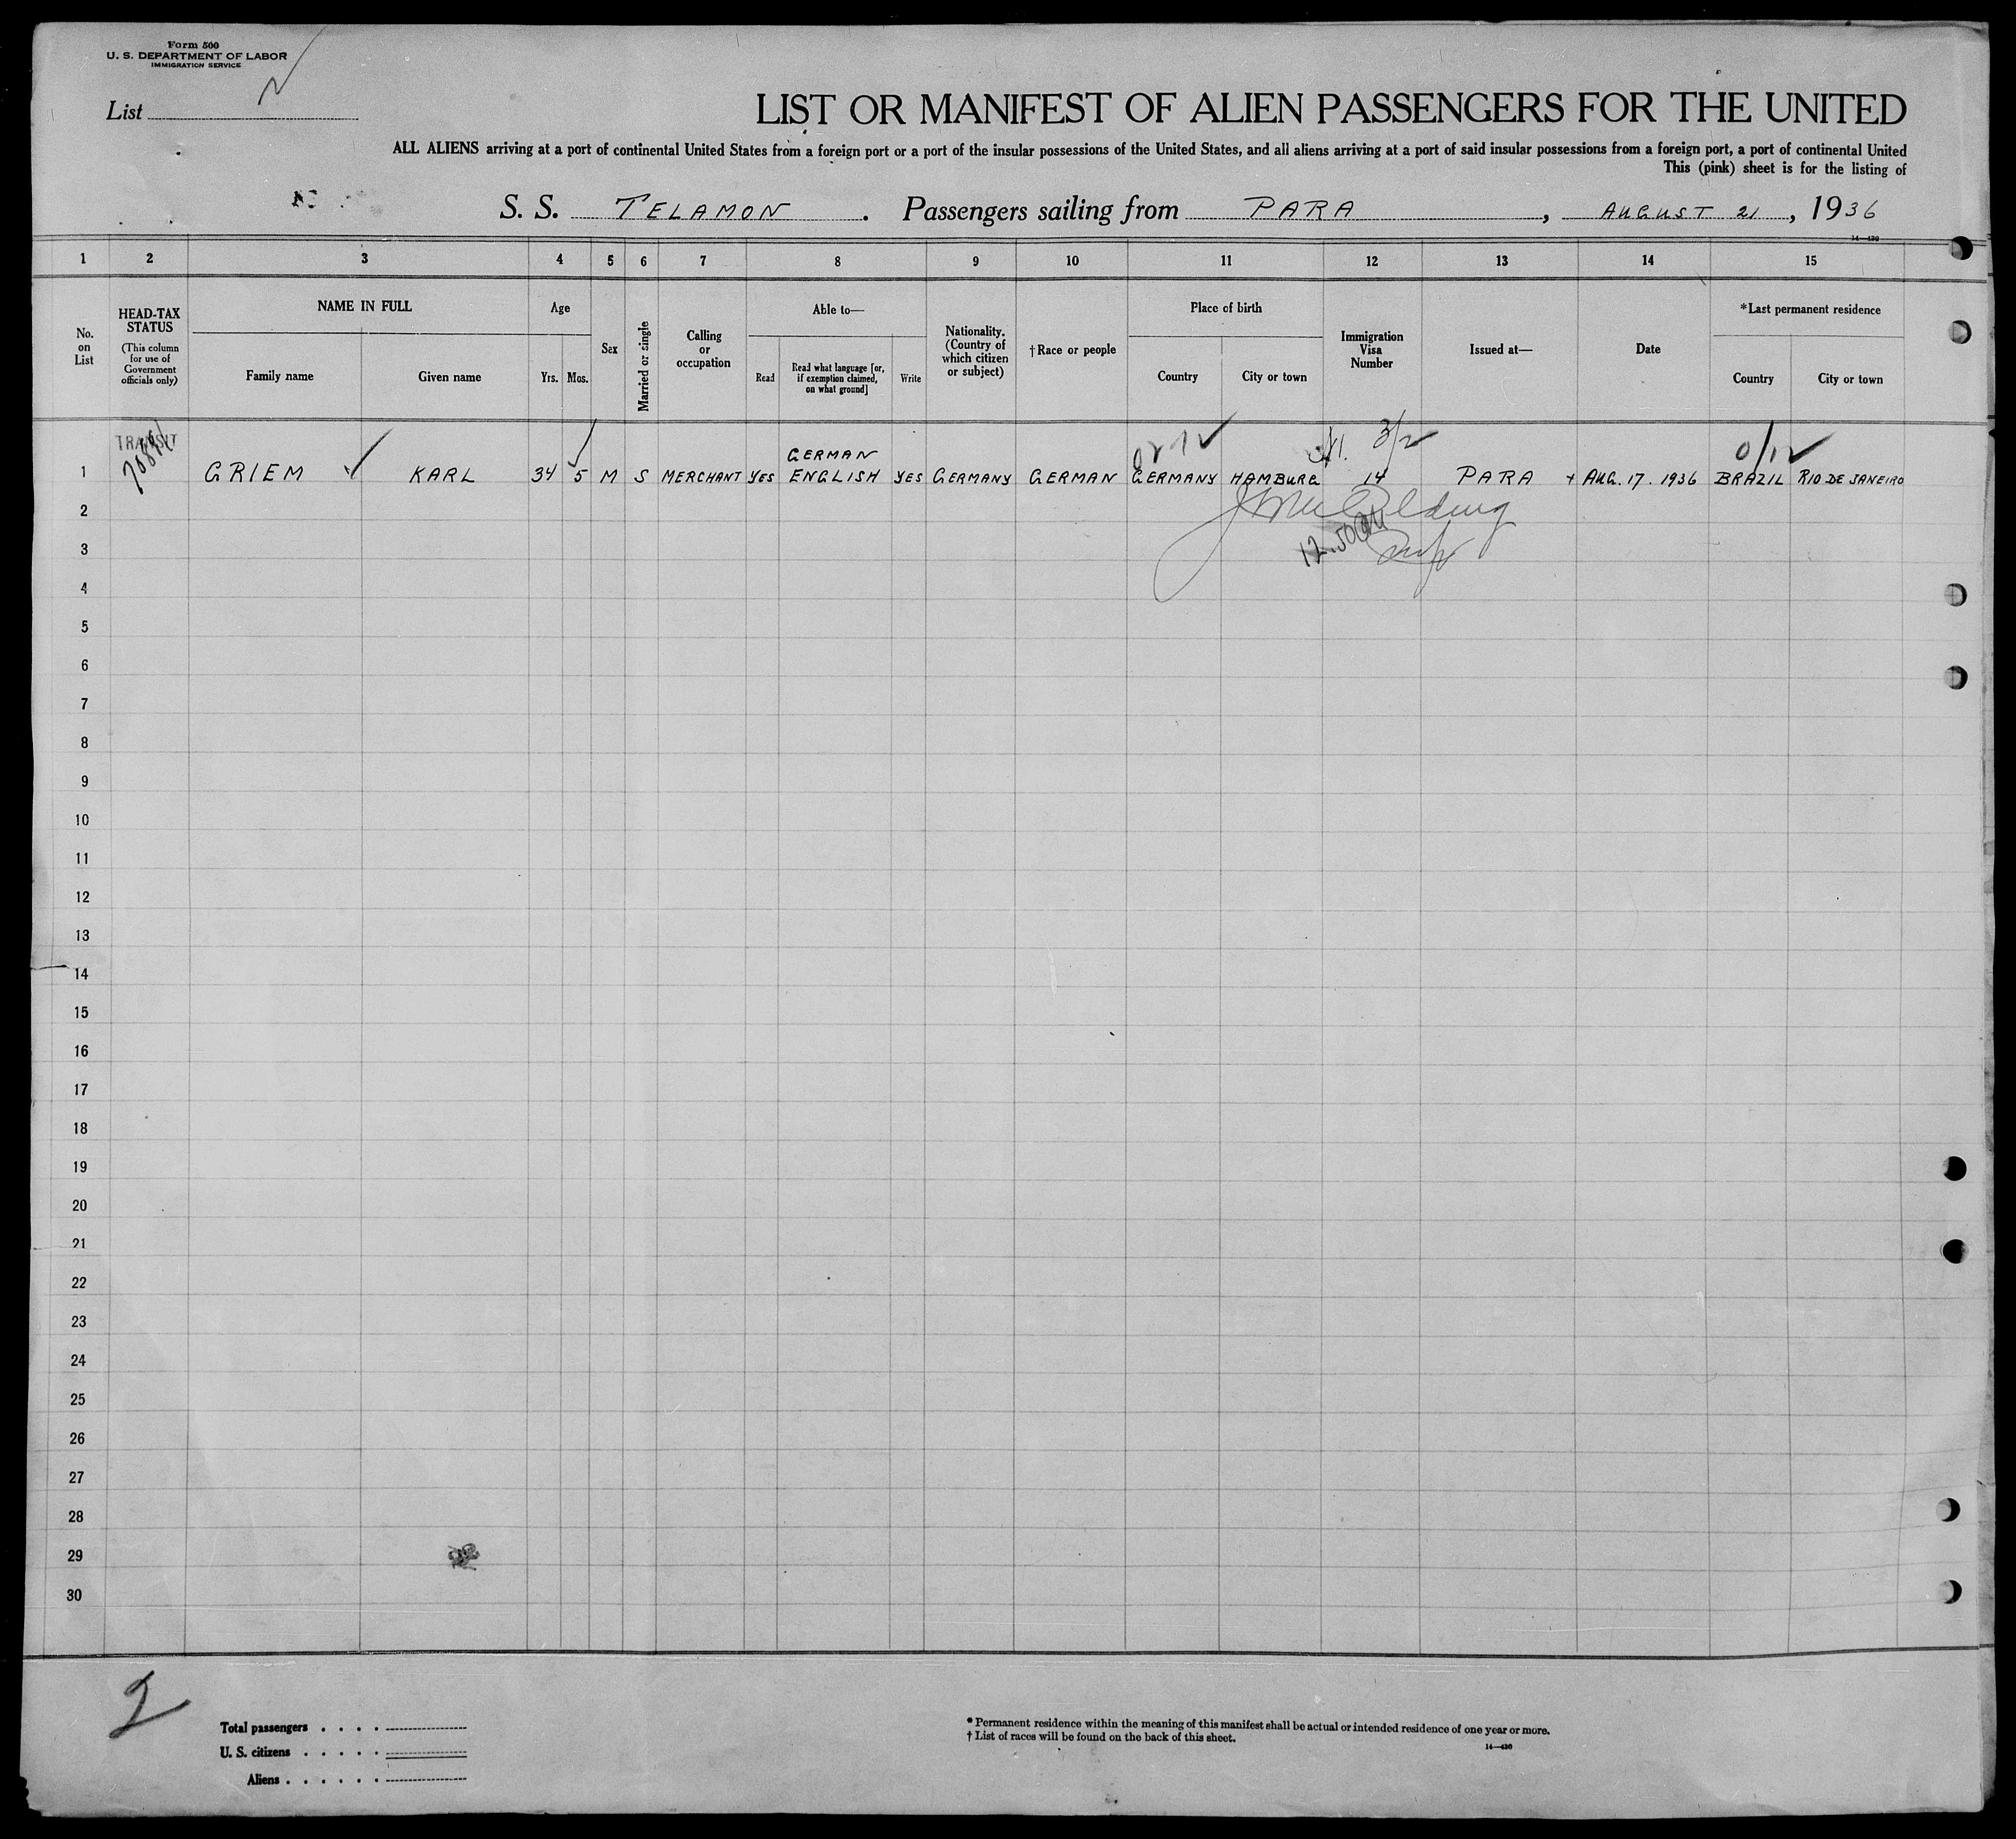 Form 500
U. S. DEPARTMENT OF LABOR
IMMIGRATION SERVICE
List
LIST OR MANIFEST OF ALIEN PASSENGERS FOR THE UNITED
ALL ALIENS arriving at a port of continental United States from a foreign port or a port of the insular possessions of the United States, and all aliens arriving at a port of said insular possessions from a foreign port, a port of continental United
This (pink) sheet is for the listing of
S. S. TELAMON. Passengers sailing from PARA, AUGUST 21, 1936
14—430
1 2 3 4 5 6 7 8 9 10 11 12 13 14 15
No. on List
HEAD-TAX STATUS (This column for use of Government officials only)
NAME IN FULL
Family name Given name
Age
Yrs. Mos.
Sex
Married or single
Calling or occupation
Able to—
Read
Read what language [or, if exemption claimed, on what ground]
Write
Nationality. (Country of which citizen or subject)
†Race or people
Place of birth
Country City or town
Immigration Visa Number
Issued at—
Date
*Last permanent residence
Country City or town
TRANSIT
3/2
GERMAN
1 GRIEM KARL 34 5 M S MERCHANT YES ENGLISH YES GERMANY GERMAN GERMANY HAMBURG 14 PARA AUG. 17. 1936 BRAZIL RIO DE JANEIRO
2
3
4
5
6
7
8
9
10
11
12
13
14
15
16
17
18
19
20
21
22
23
24
25
26
27
28
29
30
2
Total passengers . . . .
U. S. citizens . . . . .
Aliens . . . . . .
* Permanent residence within the meaning of this manifest shall be actual or intended residence of one year or more.
† List of races will be found on the back of this sheet.
14—430